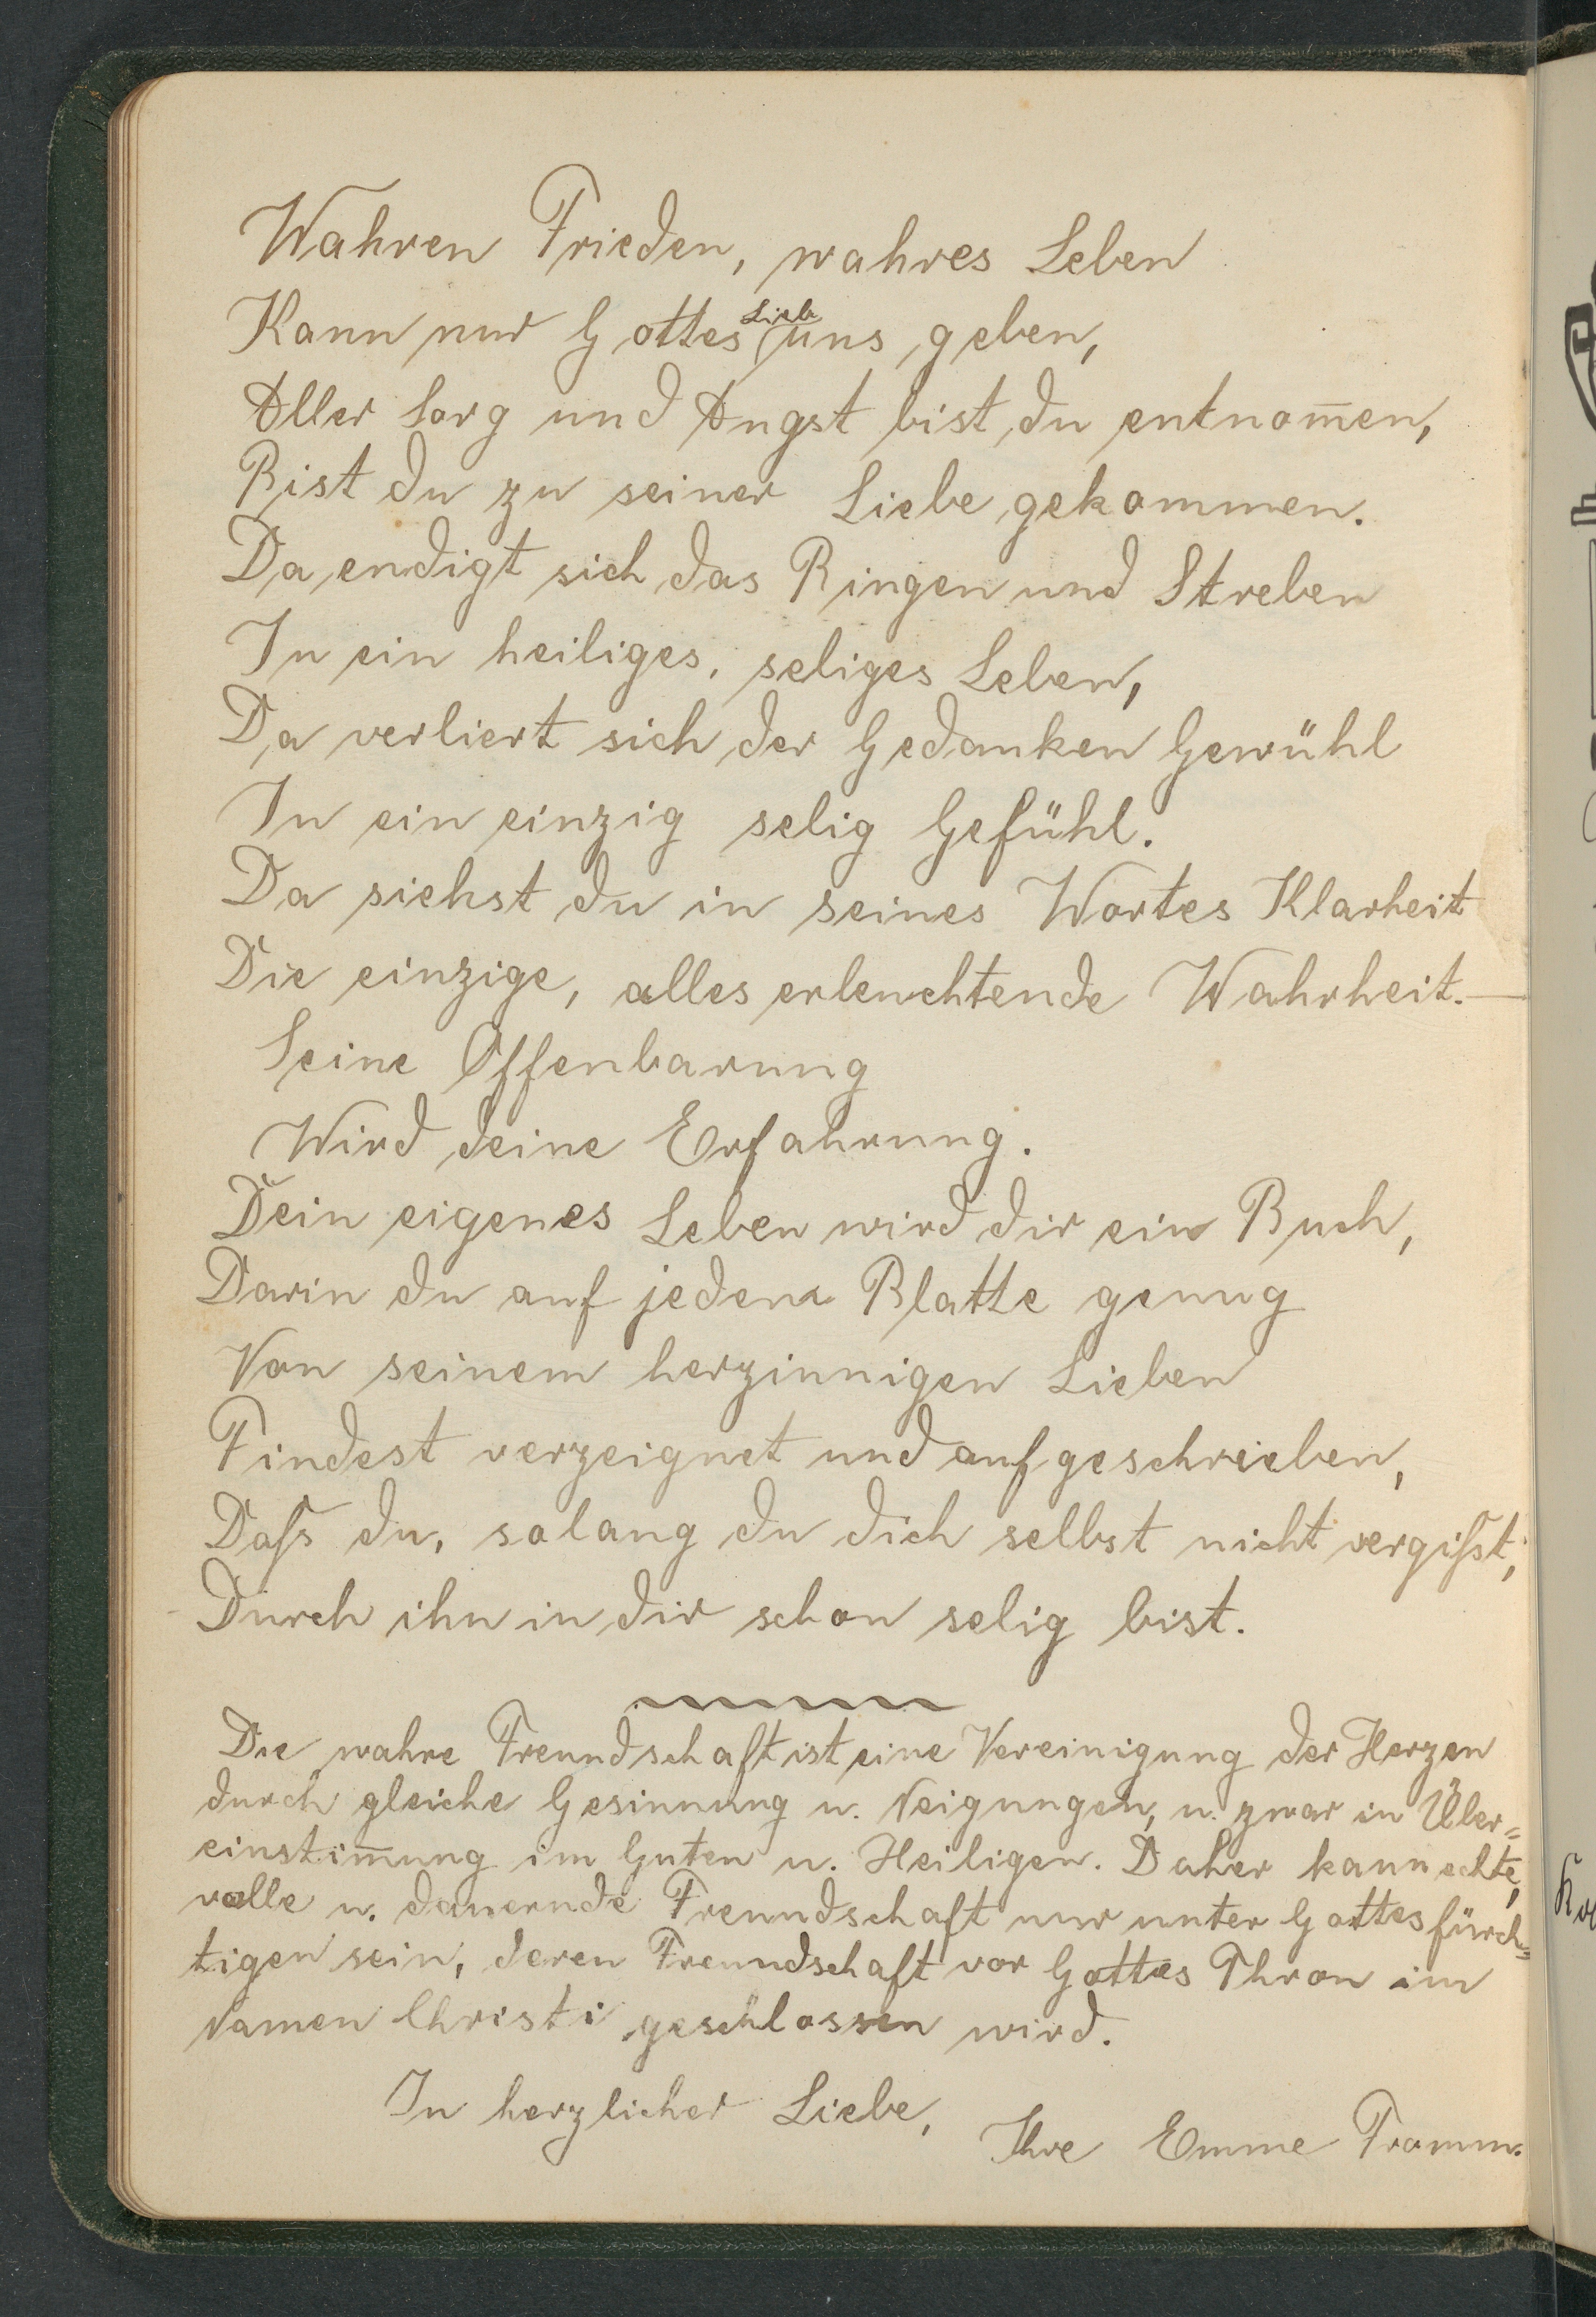 Wahren Frieden, wahres Leben
Kann nur Gottes Lieb uns geben,
Aller Sorg und Angst bist du entnom̅en,
Bist du zu seiner Liebe gekommen.
Da endigt sich das Ringen und Streben
In ein heiliges, seliges Leben,
Da verliert sich der Gedanken Gewühl
In ein einzig selig Gefühl.
Da siehst du in seines Wortes Klarheit
Die einzige, alles erleuchtende Wahrheit.—
Seine Offenbarung
Wird deine Erfahrung.
Dein eigenes Leben wird dir ein Buch,
Darin du auf jedem Blatte genug
Von seinem herzinnigen Lieben
Findest verzeignet und aufgeschrieben,
Daſs du, solang du dich selbst nicht vergiſst,
Durch ihn in dir schon selig bist.
Die wahre Freundschaft ist eine Vereinigung der Herzen
durch gleiche Gesinnung u. Neigungen, u. zwar in Über=
einstim̅ung im Guten u. Heiligen. Daher kann echte,
volle u. dauernde Freundschaft nur unter Gottesfürch=
tigen sein, deren Freundschaft vor Gottes Thron im
Namen Christi geschlossen wird.
In herzlicher Liebe,
Ihre Emme Fromm.